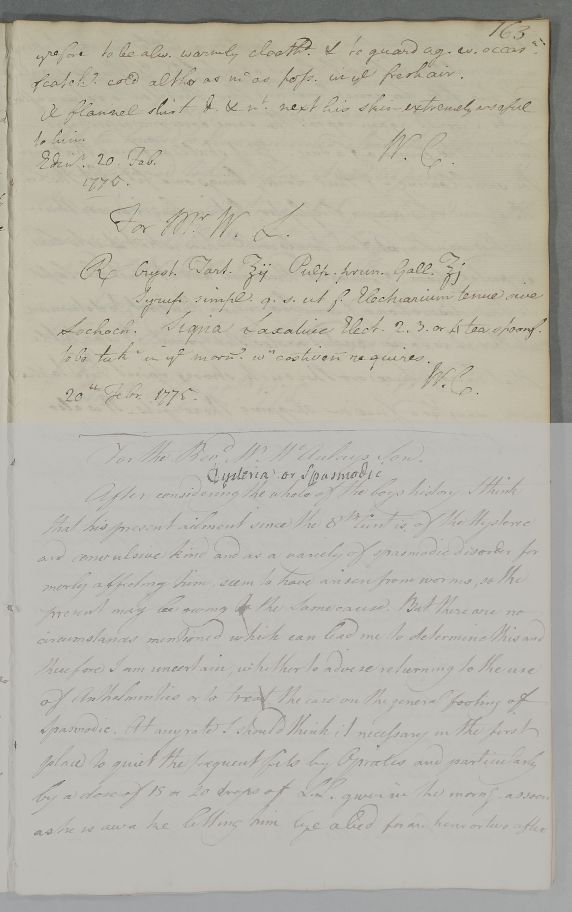 163
yrefore to be alw. warmly cloath.d & to guard ag. ev. occas.n
catch.g cold altho as m. as poss. in ye fresh air.
A flannel shirt d. & n.t next his skin extremely useful
to him.
Edin.r 20 Feb. W. C.
1775.
For Mr W. L.
℞ Cryst. Tart. ʒij Pulp. prun. Gall. ℥j
Syrup. simpl. q. s. ut f. Electuarium tenue sive
Lochoch. Signa Laxative Elect. 2. 3. or 4 tea spoonf.
to be tak.n in ye morn.g w.n costiven. requires.
W. C.
20th Febr. 1775.
For the Rev.d Mr McAulays Son.
Hysteria or Spasmodic
After considering the whole of the boys history, I think
that his present ailment since the 8th Curt is, of the Hysteric
and convulsive kind and as a variety of spasmodic disorder for
merly affecting him, seem to have arisen from worms, so the
present may be owing to the same cause. But there are no
circumstances mentioned which can lead me to determine this and
therefore I am uncertain, whether to advise returning to the use
of Anthelmintics or to treat the case on the general footing of
Spasmodic. At any rate I should think it necessary in the first
place to quiet the frequent fits by Opiates and particularly
by a dose of 15 or 20 drops of L.L. given in the morng. as soon
as he is awake letting him lye abed for an hour or two after